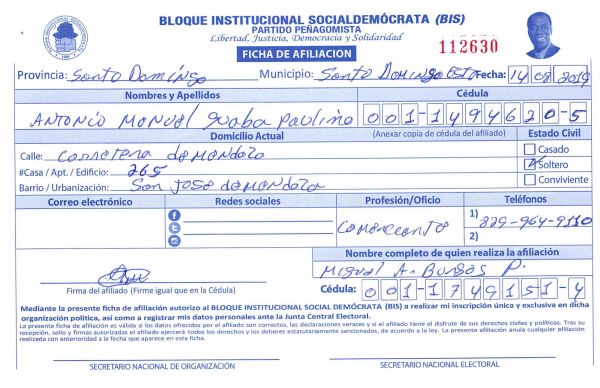 BLOQUE INSTITUCIONAL SOCIALDEMÓCRATA (BIS)
PARTIDO PEÑAGOMISTA
Libertad, Justicia, Democracia y Solidaridad
FICHA DE AFILIACION
112630
Provincia: Santo Domingo Municipio: Santo Domingo Este Fecha: 14 08 2019
Nombres y Apellidos Cédula
ANTONIO MANUEL Guaba Paulino 001-1494620-5
Domicilio Actual (Anexar copia de cédula del afiliado) Estado Civil
Calle: Carretera de Mendoza
Casado
#Casa / Apt. / Edificio: 265
Soltero
Barrio / Urbanización: San José de Mendoza
Conviviente
Correo electrónico Redes sociales Profesión/Oficio Teléfonos
Comerciante 1) 829-964-9110
2)
Nombre completo de quien realiza la afiliación
Miguel A. Burgos P.
Firma del afiliado (Firme igual que en la Cédula) Cédula: 001-1749151-4
Mediante la presente ficha de afiliación autorizo al BLOQUE INSTITUCIONAL SOCIAL DEMÓCRATA (BIS) a realizar mi inscripción única y exclusiva en dicha
organización política, así como a registrar mis datos personales ante la Junta Central Electoral.
La presente ficha de afiliación es válida si los datos ofrecidos por el afiliado son correctos, las declaraciones veraces y si el afiliado tiene el disfrute de sus derechos civiles y políticos. Tras su
recepción, sello y firmas autorizadas el afiliado ejercerá todos los derechos y los deberes estatutariamente sancionados, de acuerdo a la ley. La presente afiliación anula cualquier afiliación
realizada con anterioridad a la fecha que aparece en esta ficha.
SECRETARIO NACIONAL DE ORGANIZACIÓN SECRETARIO NACIONAL ELECTORAL